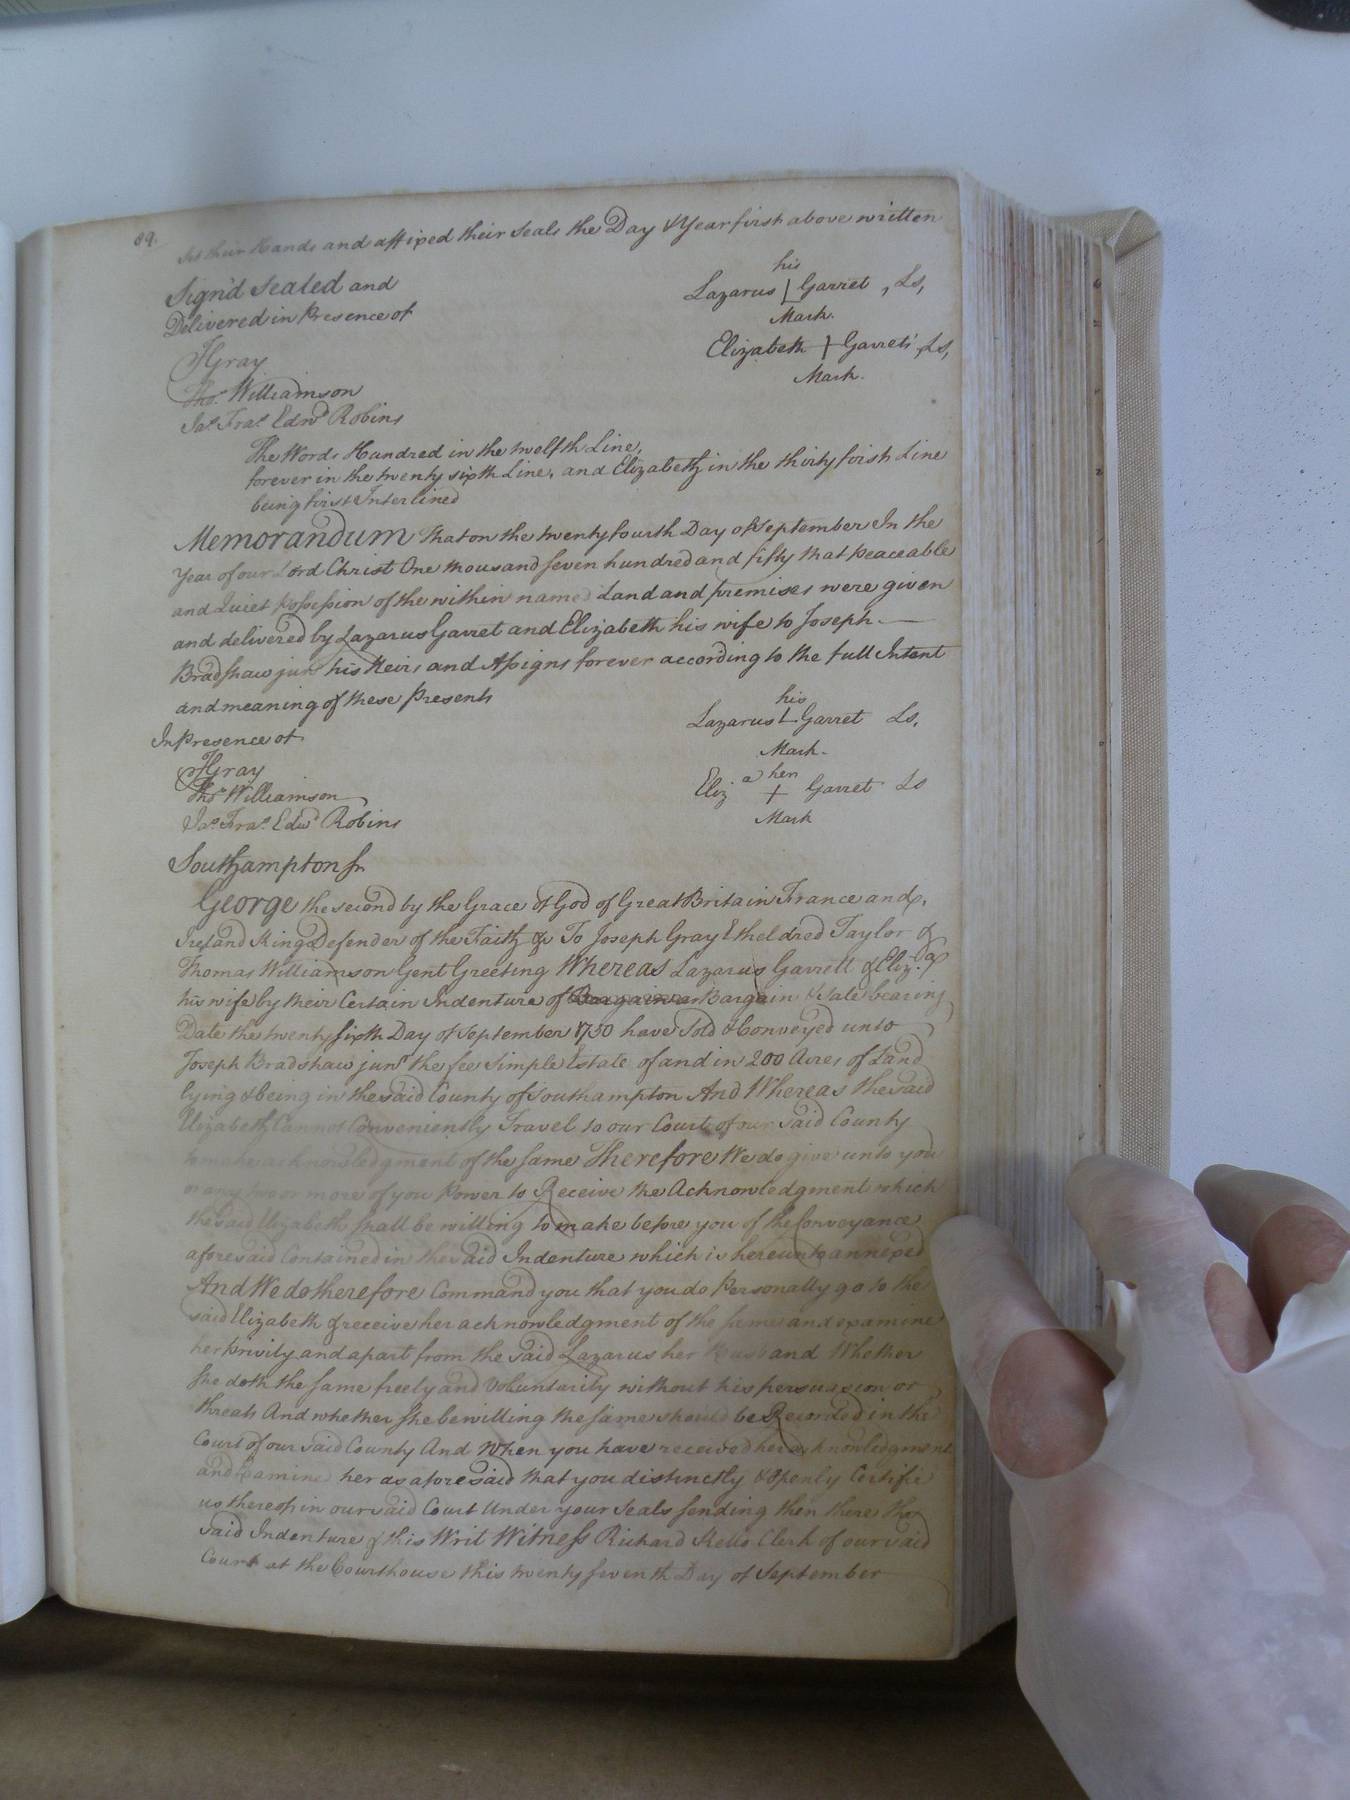 89.
Set their Hands and affixed their Seals the Day & Year first above written
Sign'd Sealed and
Delivered in Presence of
J Gray
Thos. Williamson
Jas. Fras. Edwd. Robins
his
Lazarus L Garret , Ls,
Mark.
Elizabeth + Garret Ls,
Mark.
The Words Hundred in the twelfth Line,
forever in the twenty sixth Line, and Elizabeth in the thirty first Line
being first Interlined
Memorandum That on the twenty fourth Day of September In the
Year of our Lord Christ One thousand seven hundred and fifty that peaceable
and Quiet Possession of the within named Land and premises were given
and delivered by Lazarus Garret and Elizabeth his wife to Joseph
Bradshaw junr his Heirs and Assigns forever according to the full Intent
and meaning of these Presents
In Presence of
J Gray
Thos. Williamson
Jas. Fras. Edwd. Robins
his
Lazarus L Garret Ls,
Mark.
Eliza her + Garret Ls
Mark
Southampton Ss
George the second by the Grace of God of Great Britain France and
Ireland King Defender of the Faith & To Joseph Gray Etheldred Taylor &
Thomas Williamson Gent Greeting Whereas Lazarus Garrett & Eliza.
his wife by their Certain Indenture of Bargain & Sale bearing
Date the twenty sixth Day of September 1750 have Sold & Conveyed unto
Joseph Bradshaw junr the fee Simple Estate of and in 200 Acres of Land
lying & being in the said County of Southampton And Whereas the said
Elizabeth Cannot Conveniently Travel to our Court of our said County
to make acknowledgment of the same Therefore We do give unto you
or any two or more of you Power to Receive the Acknowledgment which
the said Elizabeth shall be willing to make before you of the Conveyance
aforesaid Contained in the said Indenture which is hereunto annexed
And We do therefore Command you that you do Personally go to the
said Elizabeth & receive her acknowledgment of the same and examine
her Privily and apart from the said Lazarus her Husband Whether
she doth the same freely and Voluntarily without his persuasion or
threats And whether she be willing the same should be Recorded in the
Court of our said County And When you have received her acknowledgment
and Examined her as aforesaid that you distinctly & openly Certifie
us thereof in our said Court Under your Seals sending then there the
said Indenture & this Writ Witness Richard Kello Clerk of our said
Court at the Courthouse this twenty seventh Day of September